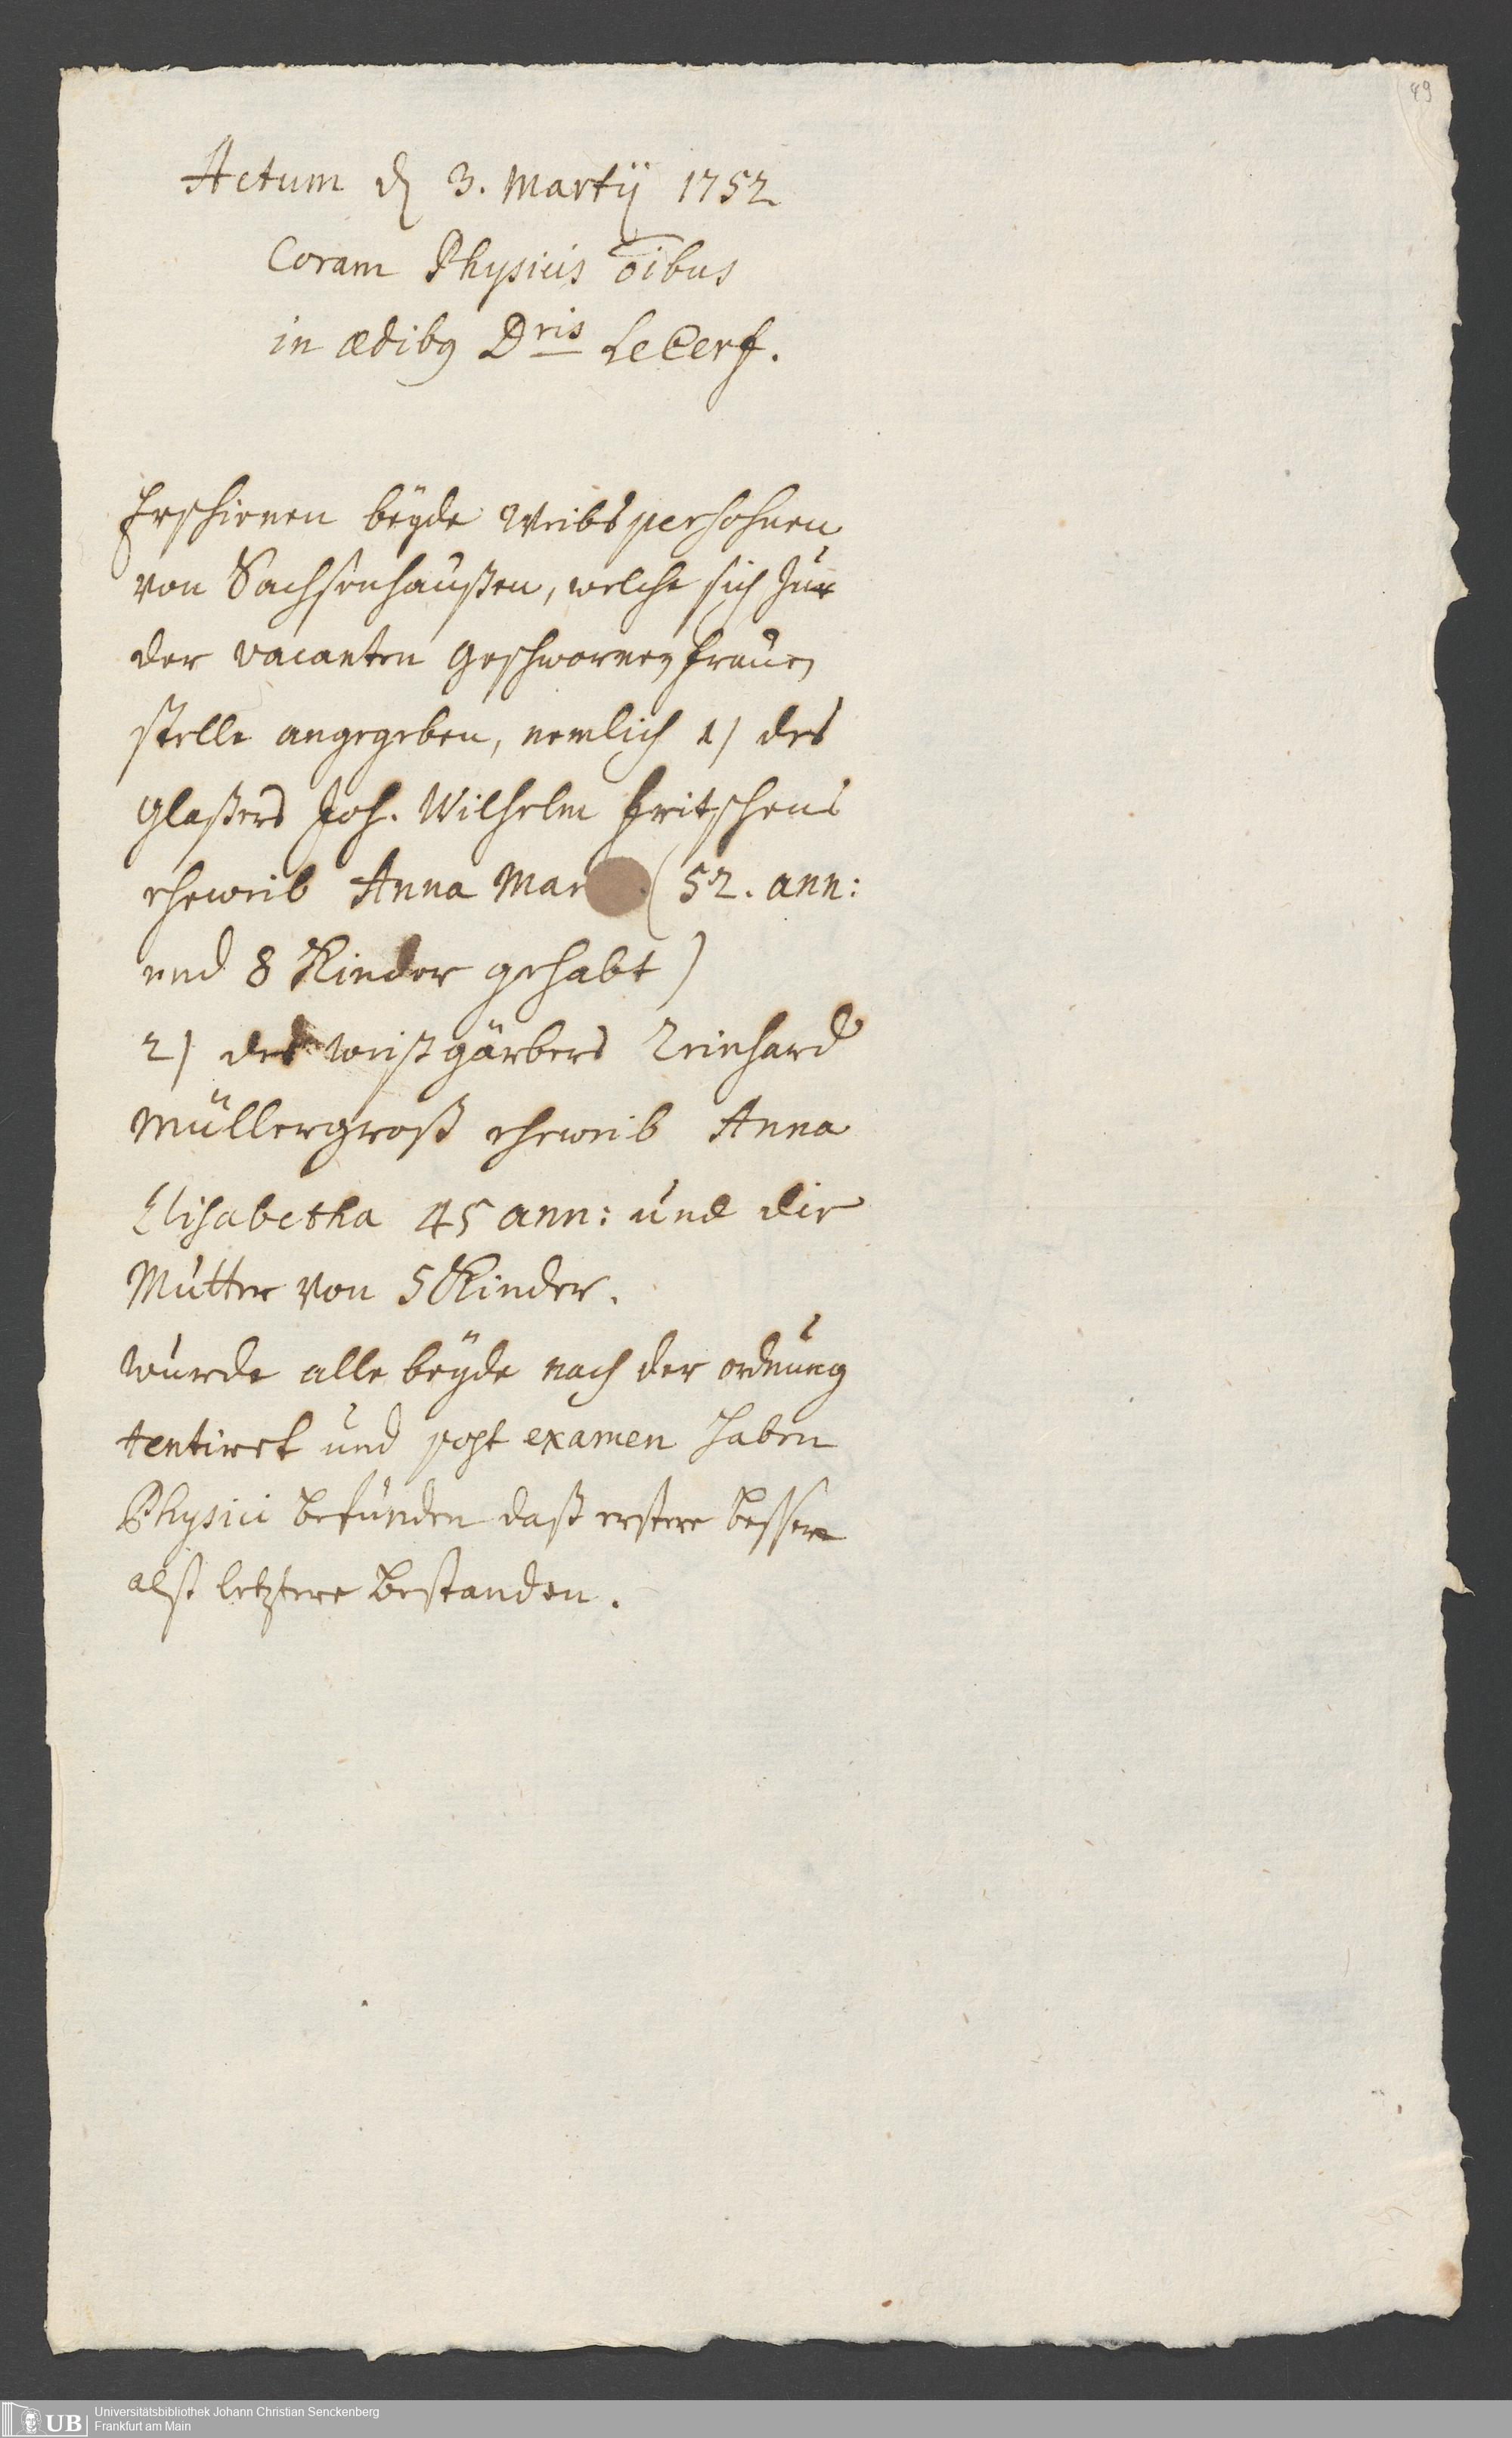 49
Actum d 3. Martÿ 1752
Coram Physicis õibus
in ædibꝯ Dris LeCerf.
Erschienen beÿde Weibspersohnen
von Sachsenhaußen, welche sich zur
der vacanten geschwornen frauen
stelle angegeben, nemlich 1) des
Glaßers Joh. Wilhelm Fritschens
eheweib Anna Mar (52. ann:
und 8 Kinder gehabt)
2) des weißgärbers Reinhard
Müllergroß eheweib Anna
Elisabetha 45 ann: und die
Mutter von 5 Kinder.
wurde alle beÿde nach der ordnung
tentiret und post examen haben
Physici befunden daß erstere besser
alß letztere bestanden.
UB
Universitätsbibliothek Johann Christian Senckenberg
Frankfurt am Main